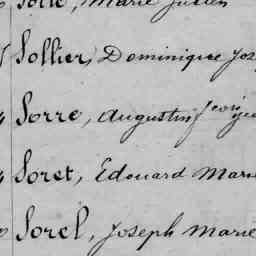 Marie Julien
Sollier, Dominique Jos
Sorre, Augustin
Soret, Édouard Marie
Sorel, Joseph Marie